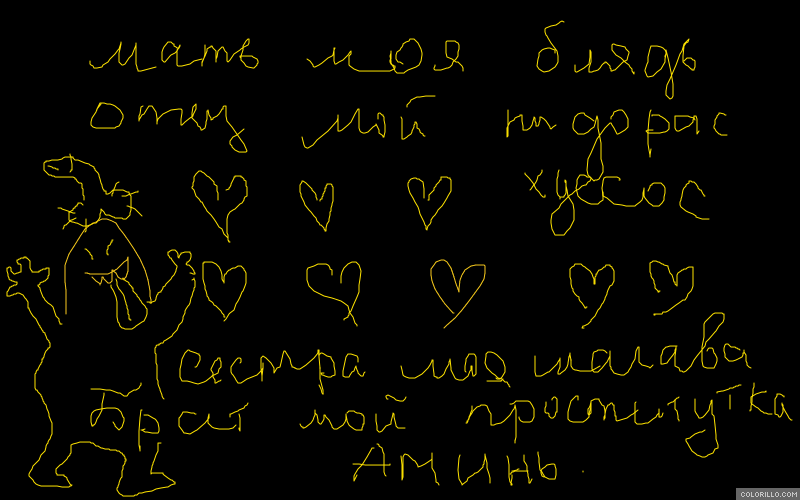 мать моя блядь
отец мой пидорас
хуесос
сестра моя шалава
Брат мой проститутка
Аминь.
COLORILLO.COM